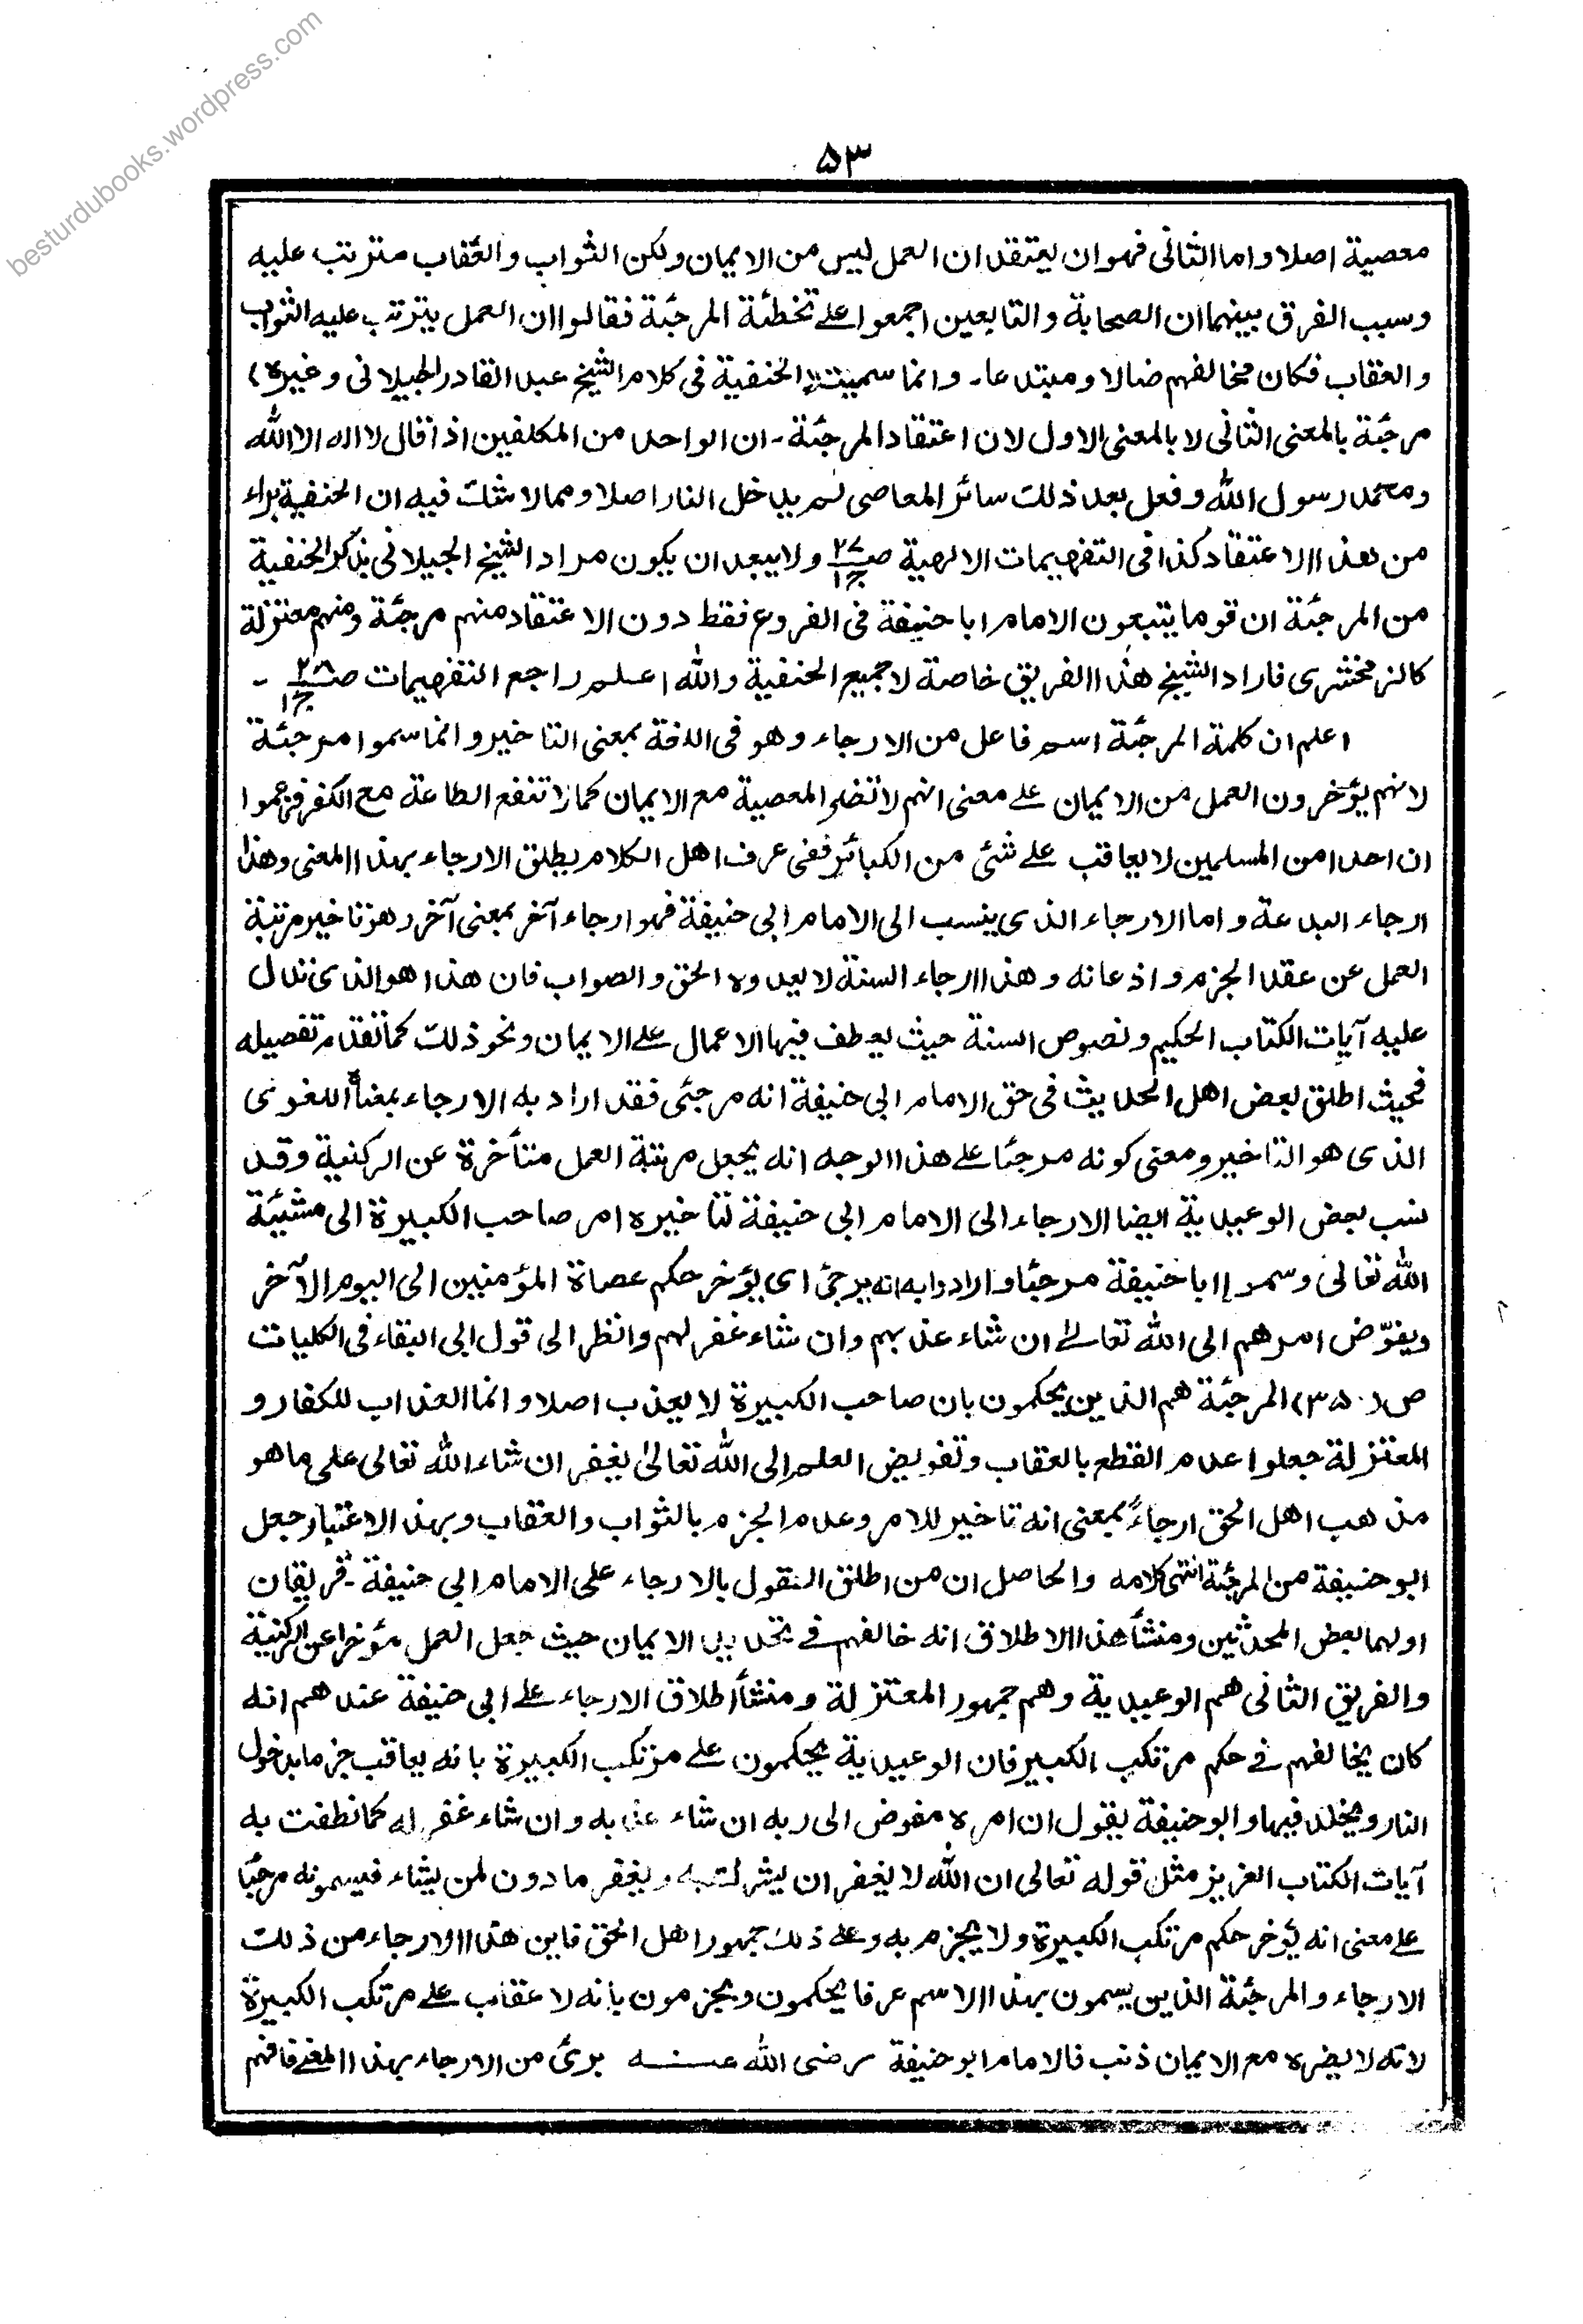 besturdubooks.wordpress.com
۵۳
معصية اصلا و اما الثانی فهو ان یعتقد ان العمل لیس من الایمان ولكن الثواب والعقاب مترتب علیه
وسبب الفرق بینهما ان الصحابة و التابعین اجمعوا علے تخطئة المرجئة فقالوا ان العمل یترتب علیه الثواب
و العقاب فكان مخالفهم ضالا و مبتدعا۔ وانما سمیت الحنفیة فی كلام الشیخ عبد القادر الجیلانی و غیره)
مرجئة بالمعنی الثانی لا بالمعنی الاول لان اعتقاد المرجئة۔ ان الواحد من المكلفین اذا قال لا اله الا الله
ومحمد رسول الله وفعل بعد ذلك سائر المعاصی لم یدخل النار اصلا ومما لا شك فیه ان الحنفیة براء
من هذا الاعتقاد كذا فی التفهیمات الالهیة ص۲۷ ج۱ ولا یبعد ان یكون مراد الشیخ الجیلانی بذكر الحنفیة
من المرجئة ان قوما یتبعون الامام ابا حنیفة فی الفروع فقط دون الاعتقاد منهم مرجئة ومنهم معتزلة
كالزمخشری فاراد الشیخ هذا الفریق خاصة لا جمیع الحنفیة والله اعلم راجع التفهیمات ص۲۸ ج۱ ۔
اعلم ان كلمة المرجئة اسم فاعل من الارجاء وهو فی اللغة بمعنی التاخیر و انما سموا مرجئة
لانهم یؤخرون العمل من الایمان علے معنی انهم لا تضر المعصیة مع الایمان كما لا تنفع الطاعة مع الكفر فزعموا
ان احدا من المسلمین لا یعاقب علے شئی من الكبائر ففی عرف اهل الكلام یطلق الارجاء بهذا المعنی وهذا
ارجاء البدعة و اما الارجاء الذی ینسب الی الامام ابی حنیفة فهو ارجاء آخر بمعنی آخر وهو تاخیر مرتبة
العمل عن عقد الجزم و اذعانه و هذا ارجاء السنة لا یعدوه الحق و الصواب فان هذا هو الذی تدل
علیه آیات الكتاب الحكیم ونصوص السنة حیث یعطف فیها الاعمال علی الایمان ونحو ذلك كما تقدم تفصیله
فحیث اطلق بعض اهل الحدیث فی حق الامام ابی حنیفة انه مرجئی فقد اراد به الارجاء بمعناه اللغوی
الذی هو التاخیر ومعنی كونه مرجئا علے هذا الوجه انه یجعل مرتبة العمل متأخرة عن الركنیة وقد
نسب بعض الوعیدیة ایضا الارجاء الی الامام ابی حنیفة لتاخیره امر صاحب الكبیرة الی مشیئة
الله تعالی وسموا ابا حنیفة مرجئا و ارادوا به انه یرجئ ای یؤخر حكم عصاة المؤمنین الی الیوم الآخر
ویفوّض امرهم الی الله تعالے ان شاء عذبهم وان شاء غفر لهم وانظر الی قول ابی البقاء فی الكلیات
ص(۳۵۰) المرجئة هم الذین یحكمون بان صاحب الكبیرة لا یعذب اصلا و انما العذاب للكفار و
المعتزلة جعلوا عدم القطع بالعقاب و تفویض العلم الی الله تعالیٰ یغفر ان شاء الله تعالی علی ما هو
مذهب اهل الحق ارجاءً بمعنی انه تاخیر للامر وعدم الجزم بالثواب والعقاب وبهذا الاعتبار جعل
ابو حنیفة من المرجئة انتهی كلامه والحاصل ان من اطلق القول بالارجاء علی الامام ابی حنیفة۔ فریقان
اولهما بعض المحدثین ومنشأ هذا الاطلاق انه خالفهم فے تحدید الایمان حیث جعل العمل مؤخرا عن الركنیة
والفریق الثانی هم الوعیدیة وهم جمهور المعتزلة و منشأ اطلاق الارجاء علے ابی حنیفة عندهم انه
كان یخالفهم فے حكم مرتكب الكبیر فان الوعیدیة یحكمون علے مرتكب الكبیرة بانه یعاقب جزما بدخول
النار ویخلد فیها و ابو حنیفة یقول ان امره مفوض الی ربه ان شاء عذبه و ان شاء غفر له كما نطقت به
آیات الكتاب العزیز مثل قوله تعالی ان الله لا یغفر ان یشرك به و یغفر ما دون لمن یشاء فیسمونه مرجئا
علے معنی انه یؤخر حكم مرتكب الكبیرة ولا یجزم به وعلے ذلك جمهور اهل الحق فاین هذا الارجاء من ذلك
الارجاء و المرجئة الذین یسمون بهذا الاسم عرفا یحكمون ویجزمون بانه لا عقاب علے مرتكب الكبیرة
لانه لا یضره مع الایمان ذنب فالامام ابو حنیفة رضی الله عنه برئ من الارجاء بهذا المعنے فافهم